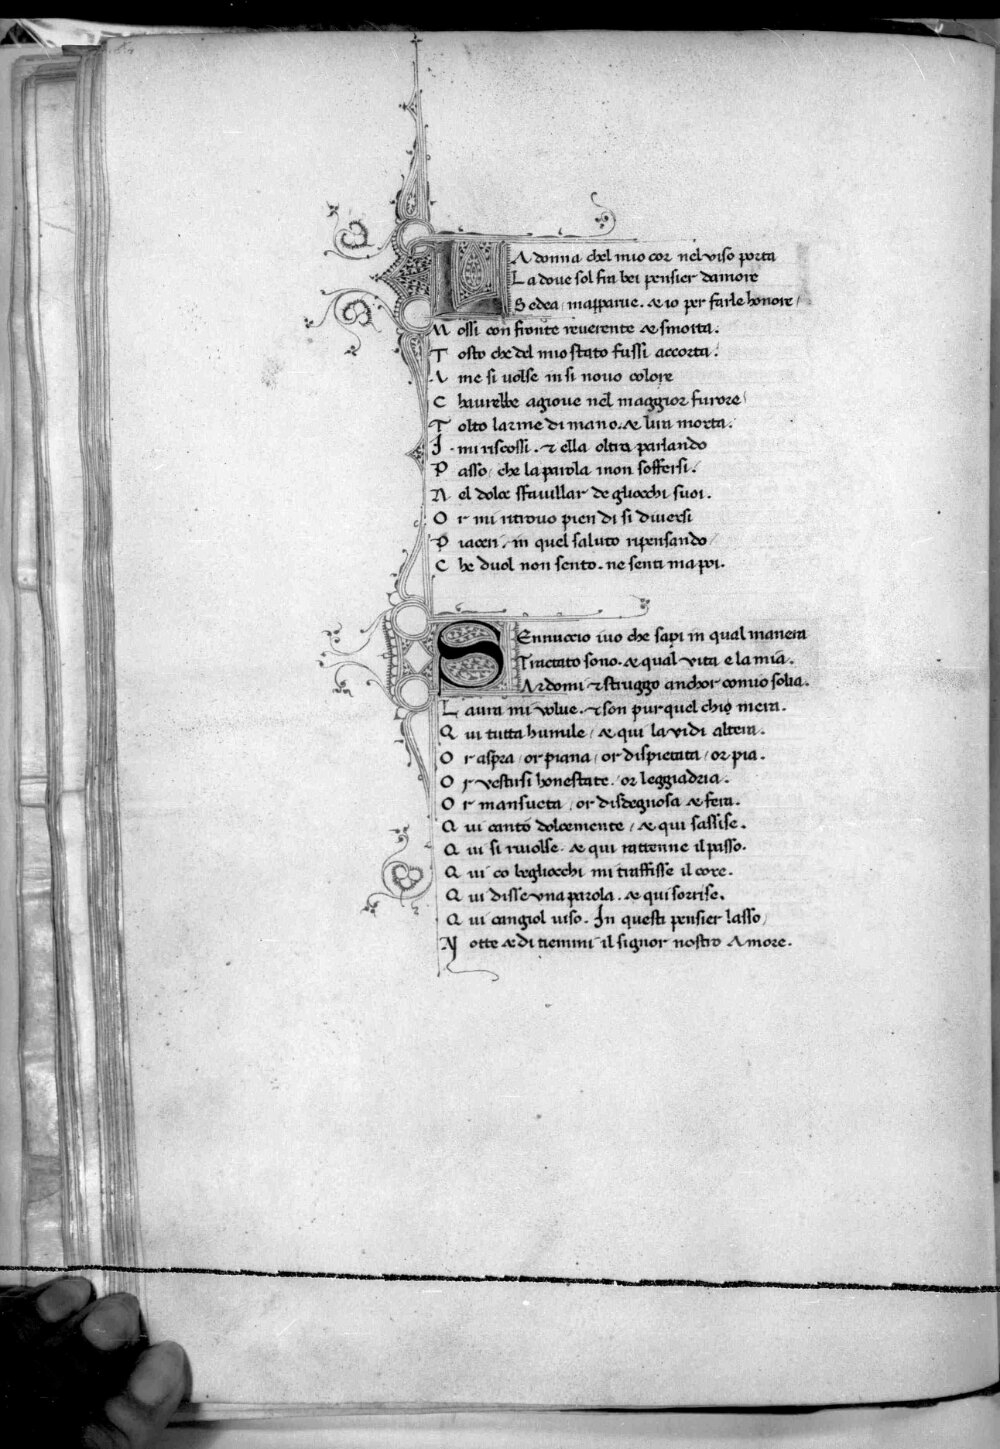 LA donna chel mio cor nel viso porta
La doue sol fra bei pensier damore
Sedea, mapparue. & io per farle honore/
Mossi con fronte reuerente & smorta.
Tosto che del mio stato fussi accorta.
A me si uolse in si nouo colore
Chaurebbe agioue nel maggior furore/
Tolto larme di mano. & lira morta.
I mi riscossi. & ella oltra parlando
Passo/ che la parola i non soffersi.
Nel dolce sfauillar de gliocchi suoi.
Or mi ritrouo pien di si diuersi
Piaceri/ in quel saluto ripensando/
Che duol non sento. ne senti ma poi.
SEnnuccio iuo che sapi in qual manera
Tractato sono. & qual vita e la mia.
Ardomi & struggo anchor comio solia.
Laura mi volue. & son pur quel chio mera.
Qui tutta humile/ & qui la vidi altera.
Or aspra/ or piana/ or dispietata/ or pia.
Or vestirsi honestate/ or leggiadria.
Or mansueta/ or disdegnosa & fera.
Qui canto dolcemente/ & qui sassise.
Qui si riuolse. & qui rattenne il passo.
Qui co begliocchi mi traffisse il core.
Qui disse vna parola. & qui sorrise.
Qui cangiol uiso. In questi pensier lasso/
Notte & di tiemmi il signor nostro Amore.